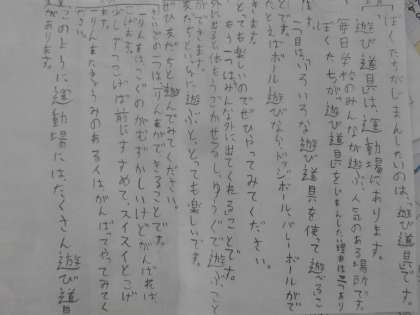 ぼくたちがじまんしたいのは、遊び道具です。
遊び道具は、運動場にあります。
毎日学校のみんなが遊ぶ、人気のある場所です。
ぼくたちが遊び道具をじまんした理由は二つあり
ます。
一つ目は、いろいろな遊び道具を使って遊べるこ
とです。
たとえばボール遊びなら、ドッジボール、バレーボールがで
きます。
とても楽しいのでぜひやってみてください。
もう一つはみんな外に出てくれることです。
外に出ると体をうごかせるし、ゆうぐで遊ぶこと
ができます。
友だちといっしょに遊ぶと、とっても楽しいです。
ぜひ友だちと遊んでみてください。
一りんまができることです。
りん車は、こぐのがむずかしいけどがんばれば、
少しずつこげば前にすすめて、スイスイとこげ
一りんまたきょうみのある人はがんばってやってみてく
ださい。
このように運動場にはたくさん遊び道具
があります。